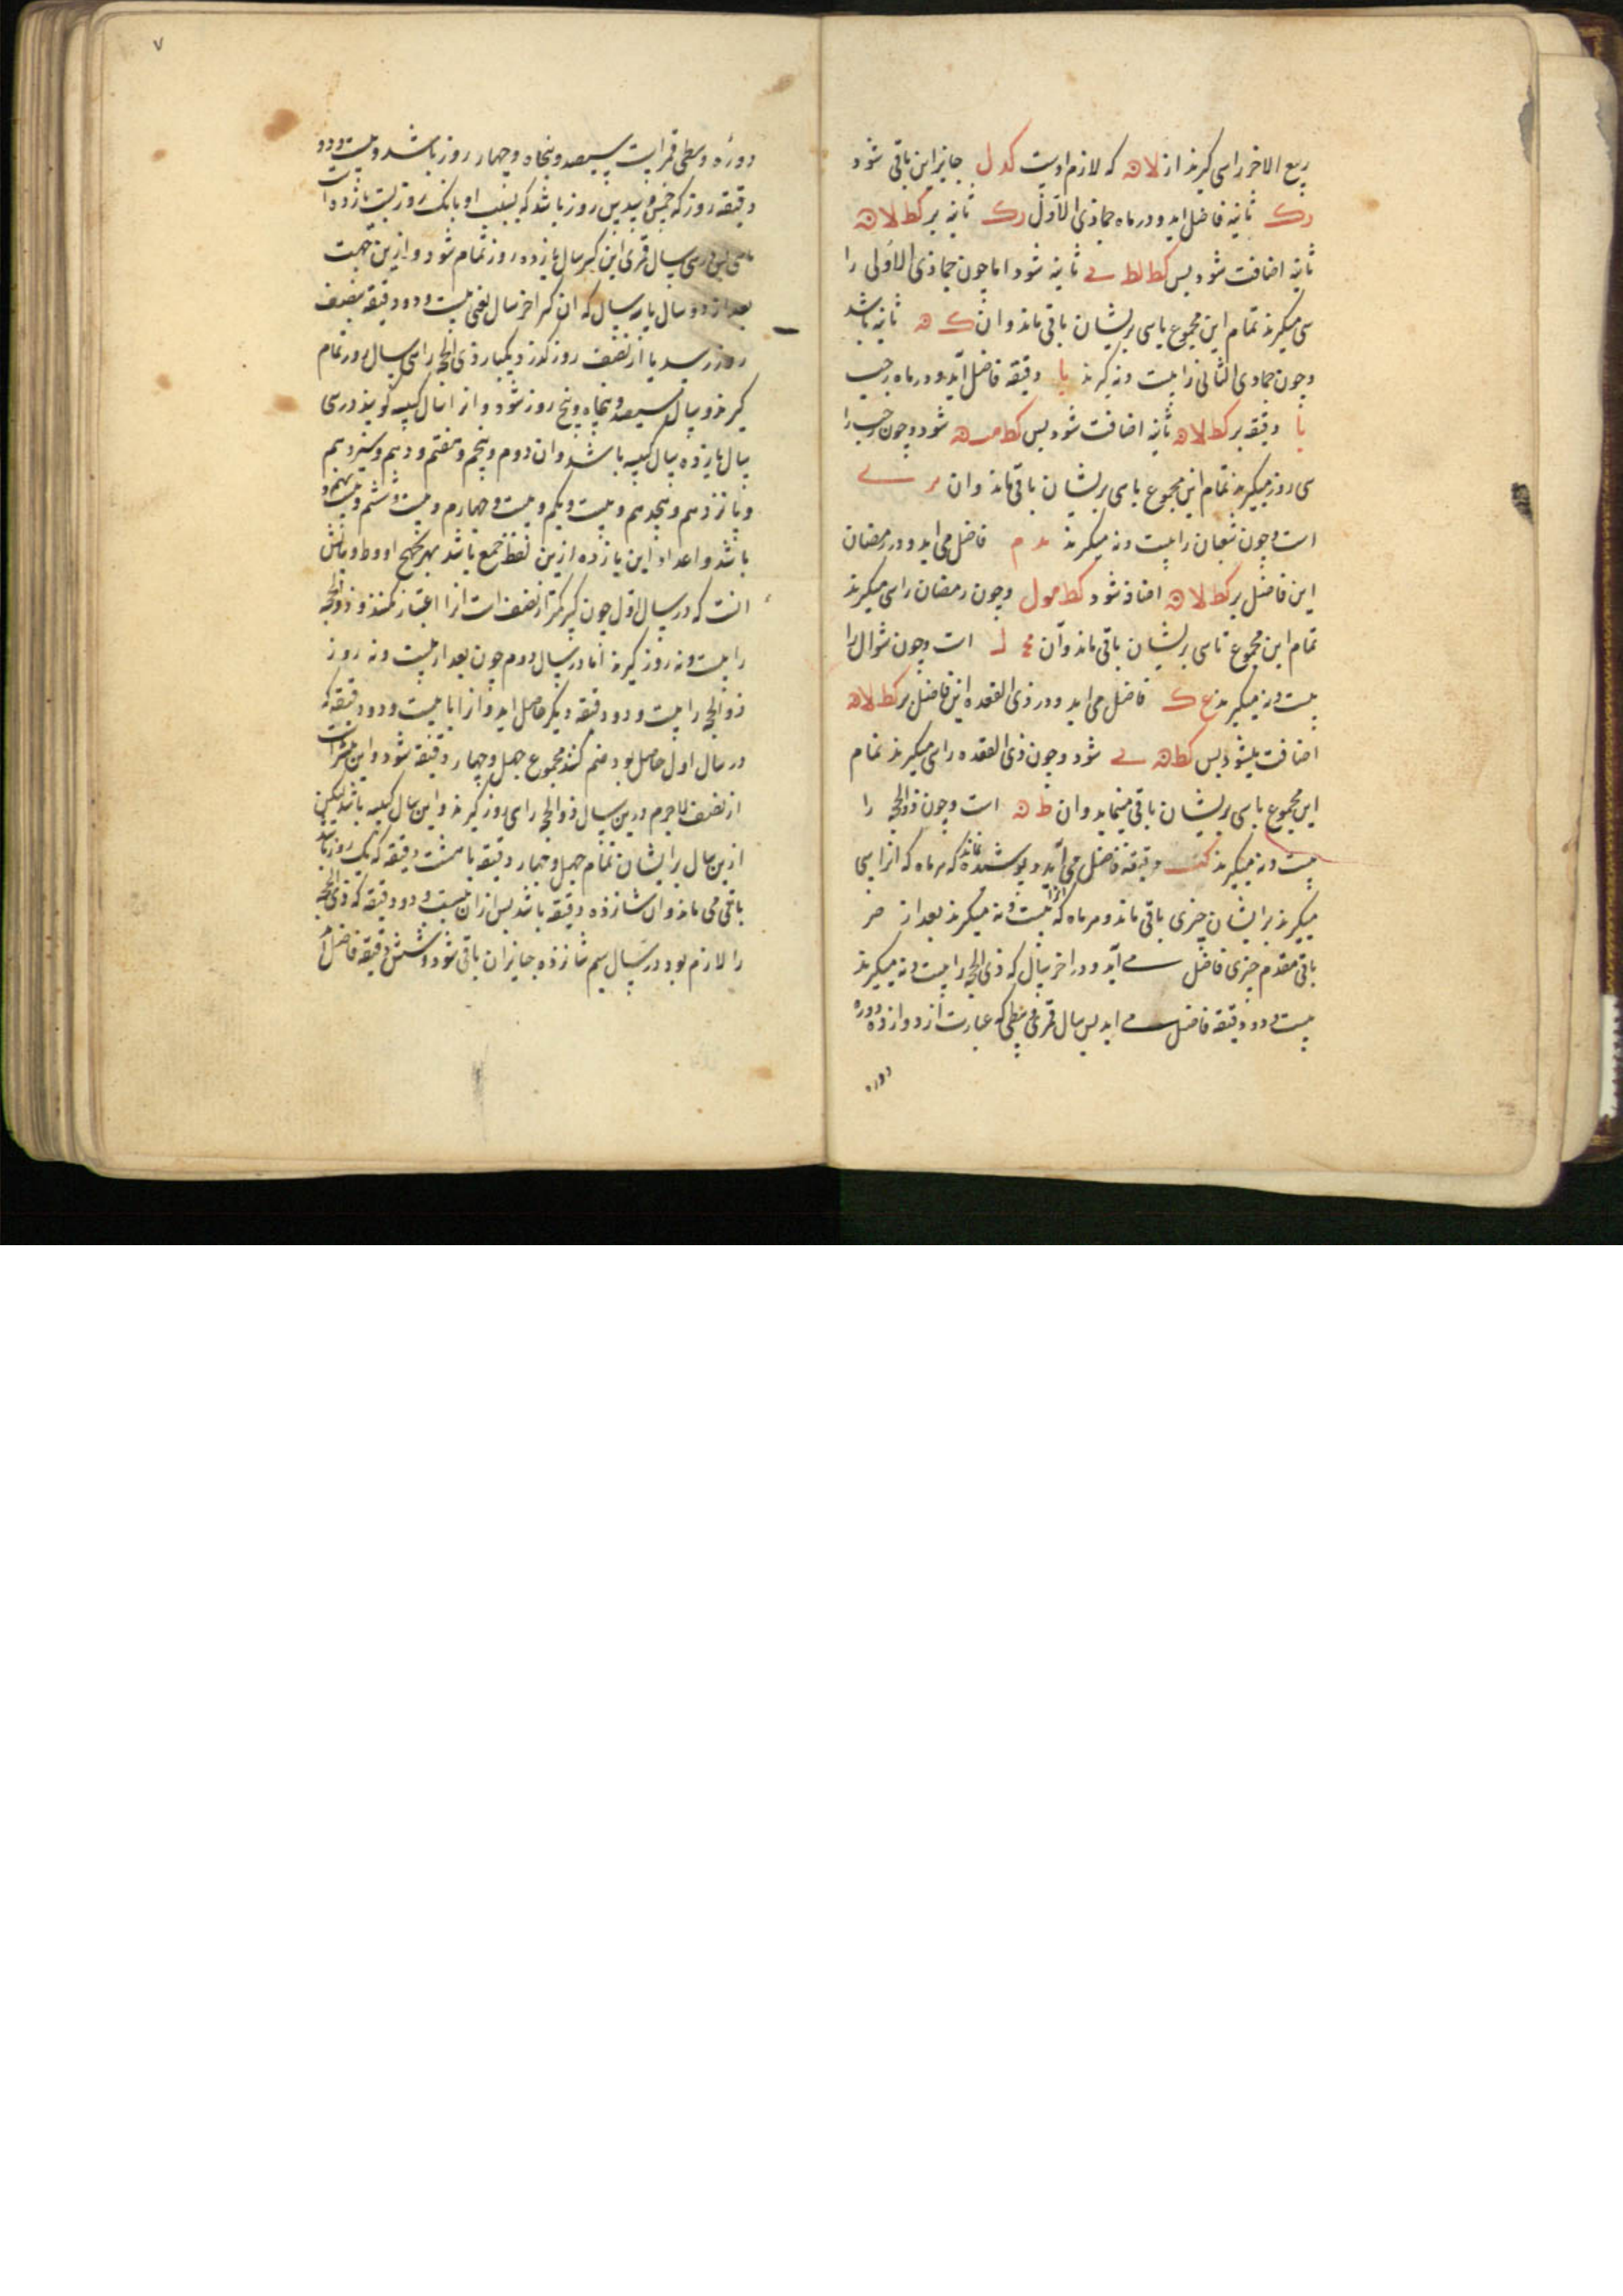 ربیع الاخر را سی کیرند از لا ﻫ که لازم اوست کد ل جانزاین باقی شود
رک ثانیه فاضل اید و در ماه جماذی الاول رک ثانیه بر کط لا ن
ثانیه اضافت شود پس کط لط ی ثانیه شود اما چون جماذی الاولی را
سی میکیرند تمام این مجموع یا سی بریشان باقی ماند و ان ک ﻫ ثانیه باشد
و چون جمادی الثانی را بیست و نه کیرند یا دقیقه فاضل آید و در ماه رجب
یا دقیقه بر کط لا ن ثانیه اضافت شود پس کط مب ن شود و چون رجب را
سی روز میکیرند تمام این مجموع یا سی بریشان باقی ماند و ان
است و چون شعبان را بیست و نه میکیرند ید م فاضل می اید و در رمضان
این فاضل بر کط لا ن اضافه شود کط مو ل و چون رمضان را سی میکیرند
تمام این مجموع تا سی بریشان باقی ماند و آن ل است و چون شوال را
بیست و نه میکیرند ک فاضل می اید و در ذی القعده این فاضل بر کط لا ن
اضافت میشود پس کط ن ی شود و چون ذی القعده را سی میکیرند تمام
این مجموع یا سی بریشان باقی میماند و ان ط ن است و چون ذوالحجه را
بیست و نه میکیرند کب دقیقه فاضل می آید و پوشیده نماند که هر ماه که انرا سی
میکیرند برایشان چیزی باقی ماند و هر ماه که انرا بیست و نه میکیرند بعد از
باقی مقدم چیزی فاضل می آید و در اخر سال که ذی الحجه را بیست و نه میکیرند
بیست و دو دقیقه فاضل می اید پس سال قمری وسطی که عبارت از دوازده دوره
دوره
۷
دوره وسطی قمرایست سیصد و پنجاه و چهار روز باشد و بیست و دو
دقیقه روز که خمس و سدس روز باشد که نسبت او با یک روز نسبت یازده است
با سی پس در سی سال قمری این کسر سال یازده روز تمام شود و ازین جهت
بعد از دو سال یا سه سال که ان کسر اخر سال یعنی بیست و دو دقیقه بنصف
روز رسد یا از نصف روز کذرد یکبار ذی الحجه را سی سال روز تمام
کیرند و سال سیصد و پنجاه و پنج روز شود و از انسال کبیسه کویند در سی
سال یازده سال کبیسه باشد و ان دوم و پنجم و هفتم و دهم و سیزدهم
و پانزدهم و هجدهم و بیست و یکم و بیست و چهارم و بیست و ششم و بیست و نهم
باشد و اعداد این یازده ازین لفظ جمع باشد بهزیجهح ادوط و بیانش
انست که در سال اول چون کسر کمتر از نصف است انرا اعتبار نکنند و ذوالحجه
را بیست و نه روز کیرند اما در سال دوم چون بعد از بیست و نه روز
ذوالحجه را بیست و دو دقیقه دیکر حاصل اید و از ابا بیست و دو دقیقه که
در سال اول حاصل بود ضم کنند مجموع چهل و چهار دقیقه شود و این بیشتر است
از نصف لاجرم درین سال ذوالحجه را سی روز کیرند و این سال کبیسه باشد لیکن
ازین سال برایشان تمام چهل و چهار دقیقه با شصت دقیقه که یک روز باشد
باقی می ماند و ان شانزده دقیقه باشد پس از ان بیست و دو دقیقه که ذی الحجه
را لازم بود در سال سیم شانزده جانزان باقی شود و شش دقیقه فاضل آید